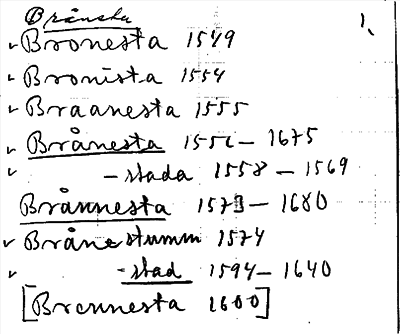 Brånsta 1.
Bronesta 1549
Bronista 1554
Braanesta 1555
Brånesta 1556–1675
–stada 1558–1569
Brånnesta 1573–1680
Brånestumm 1574
–stad 1594–1640
[Brennesta 1600]